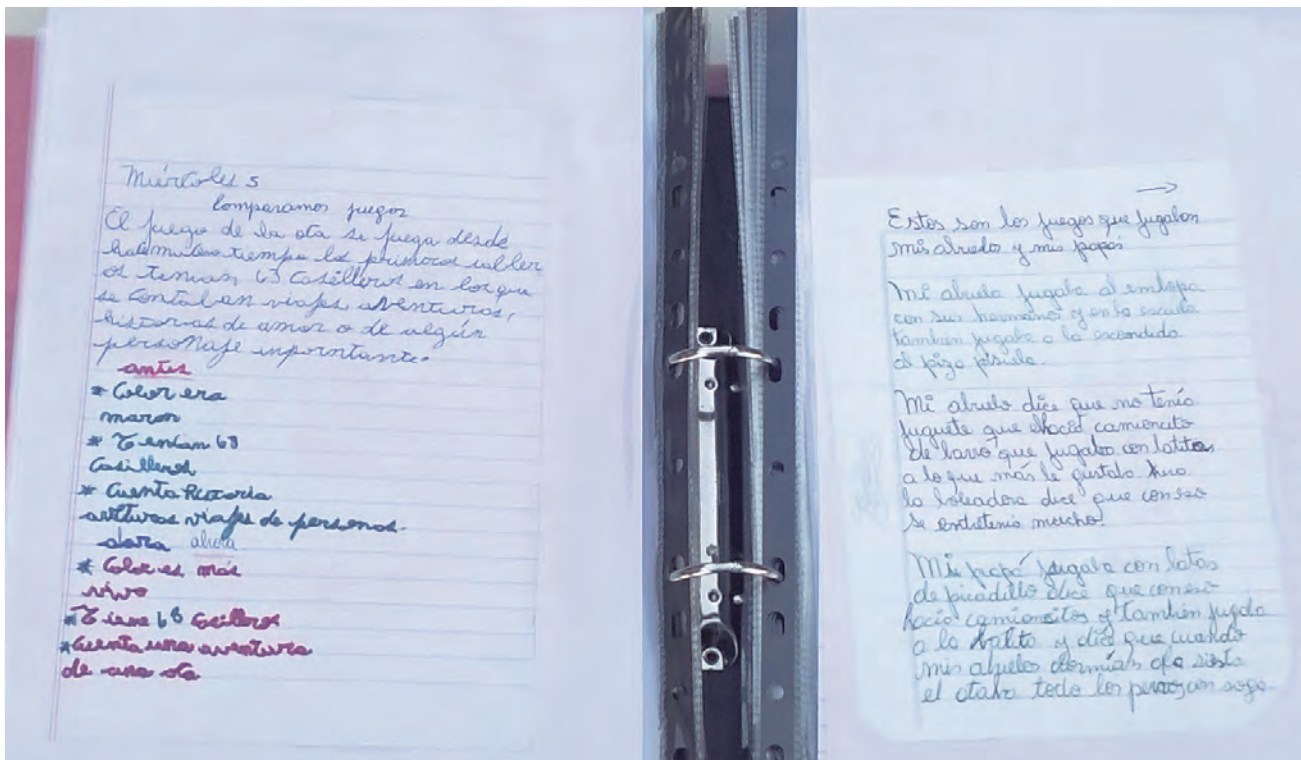 Miércoles 5
Comparamos juegos
El juego de la ota se juega desde
hace mucho tiempo los primeros
os tenían 63 casilleros en los que
se contaban viajes aventuras,
historias de amor o de algún
personaje inporntante.
antes
* Color era
maron
* Tenian 63
Casilleros
* Cuenta
viajes de personas.
ahora
* Color es más
vivo
* Tiene 68 Casilleros
* Cuenta una aventura
de una ota
→
Estos son los juegos que jugaban
mis abuelo y mis papás
Mi abuela jugaba al
con sus hermano y en la escuela
tambien jugaba a la escondida
al pizo pisuela.
Mi abuelo dice que no tenía
juguete que hacia camioncito
de barro que jugaba con latitas
a lo que más le gustaba
la boleadora dice que con eso
se entretenía mucho.
Mi papá jugaba con latas
de picadillo dice que con eso
hacía camioncitos y también jugaba
a la y dice que cuando
mis abuelos dormían siesta
el ataba todo los perros con soga.